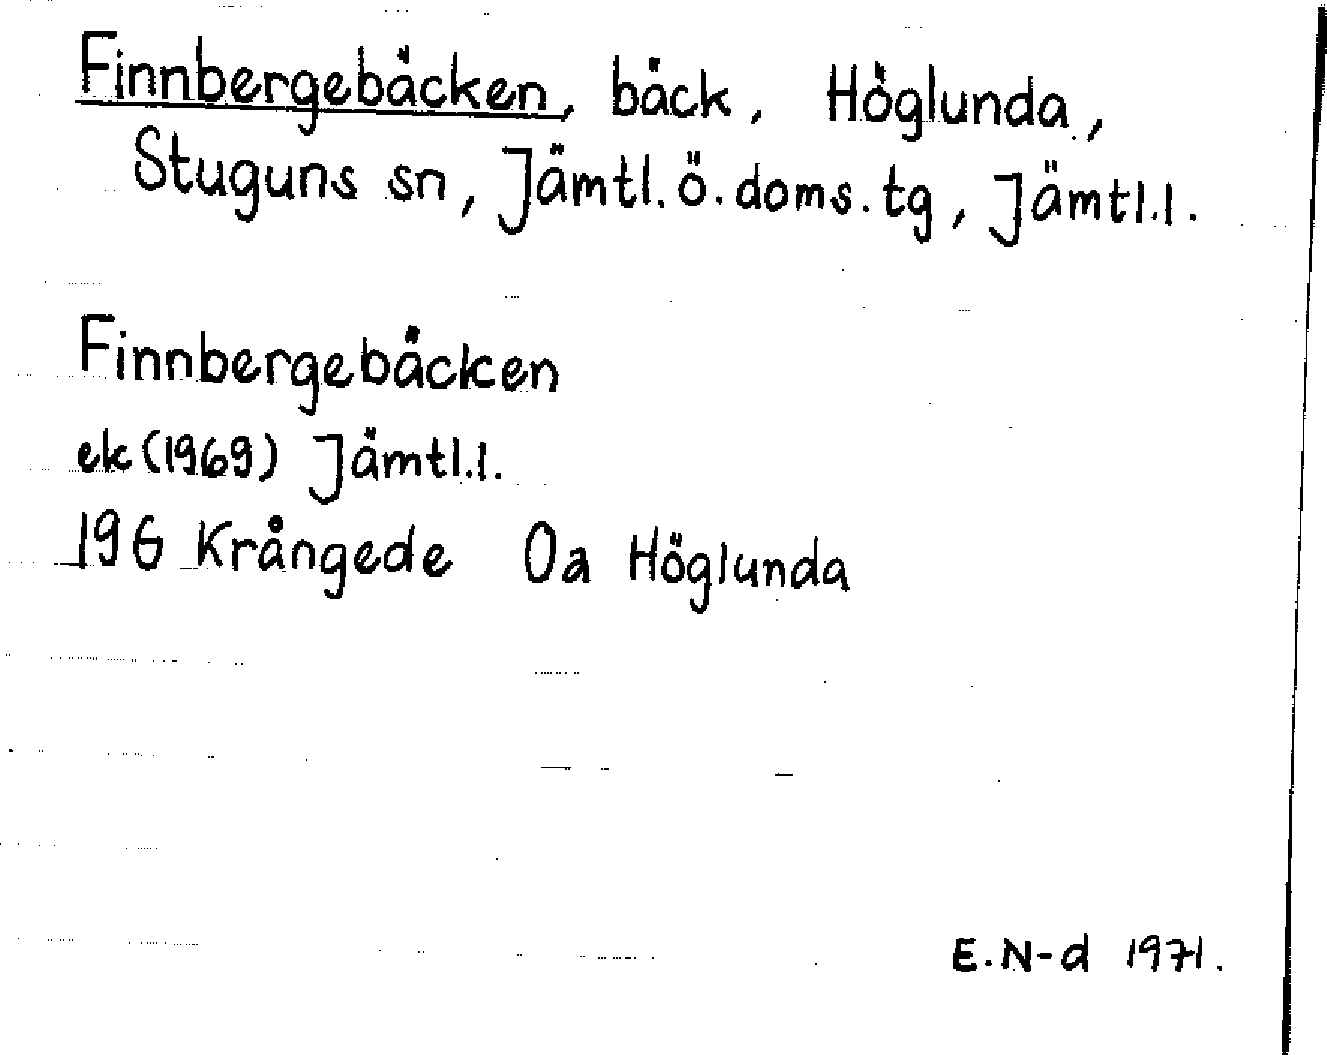 Finnbergebäcken, bäck, Höglunda,
Stuguns sn, Jämtl. ö. doms. tg, Jämtl.l.
Finnbergebäcken
ek (1969) Jämtl.l.
19G Krångede Oa Höglunda
E.N-d 1971.